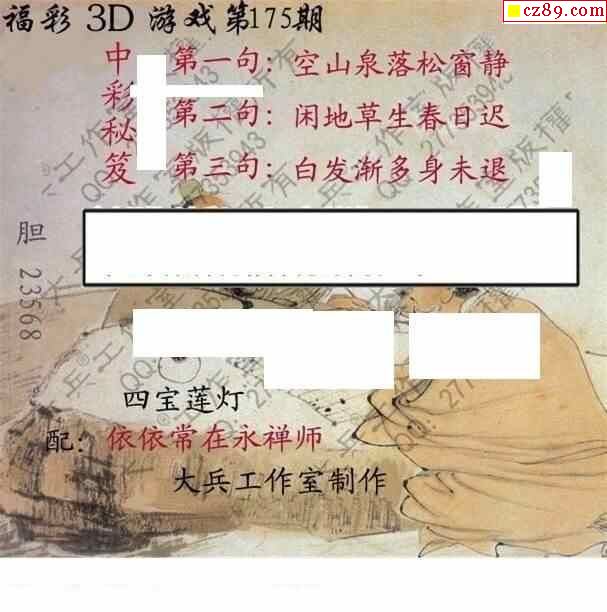 cz89.com
福彩 3D 游戏 第175期
中彩秘笈
第一句：空山泉落松窗静
第二句：闲地草生春日迟
第三句：白发渐多身未退
胆 23568
四宝莲灯
配：依依常在永禅师
大兵工作室制作